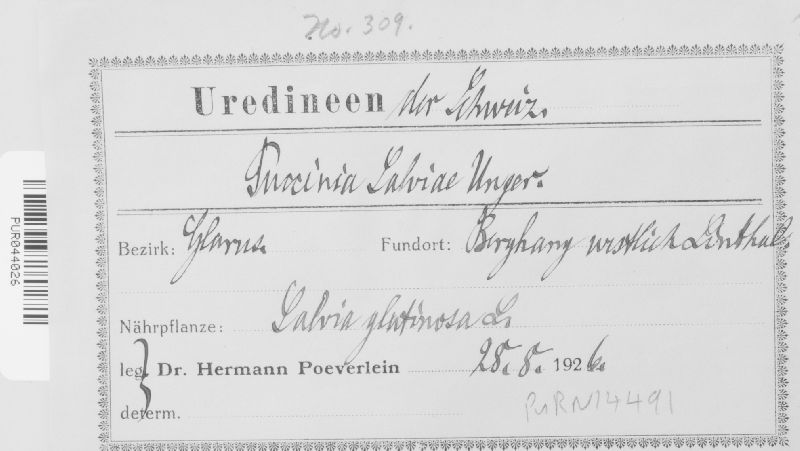 No. 309.
Uredineen der Schweiz.
Puccinia Salviae Unger.
Bezirk: Glarus. Fundort: Berghang westlich Linthal.
Nährpflanze: Salvia glutinosa L.
leg. } Dr. Hermann Poeverlein 28. 8. 1926.
determ.
PURN14491
PUR044026